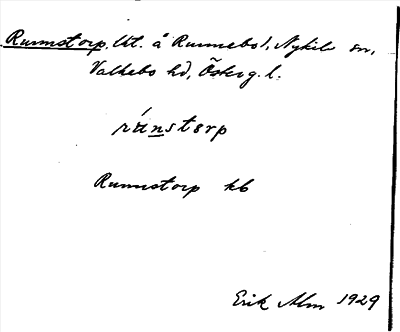 Runnstorp, lht. å Runnebol, Nykils sn,
Valkebo hd, Österg. l.
rúnstorp
Runnstorp kb
Erik Alm 1929